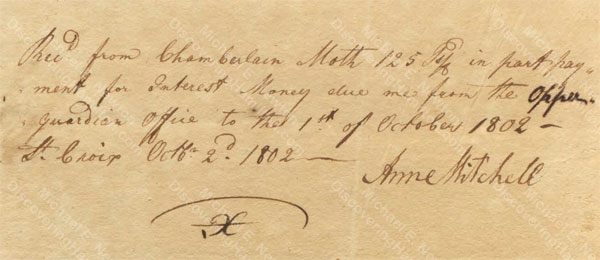 Rec.d from Chamberlain Moth 125 Ps/8 in part pay-
ment for Interest Money due me from the Opper-
guardian Office to the 1st of October 1802 —
St. Croix Octbr 2d. 1802 —
Anne Mitchell
X